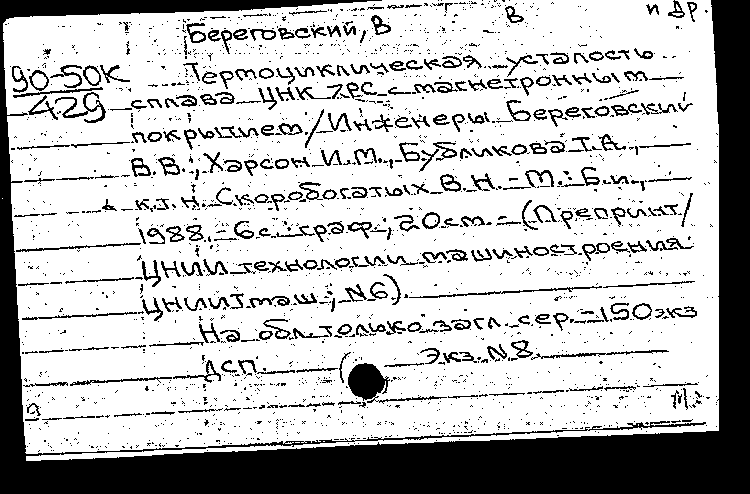 Береговский, В В и др.
90-50к
429
Термоциклическая усталость
сплава ЦНК 7РС с магнетронным
покрытием / Инженеры Береговский
В.В., Хэрсон И.М., Бубликова Т.А.,
к.т.н. Скоробогатых В.Н. - М.: Б.и.,
1988. - 6с.: граф.; 20см. - (Препринт /
ЦНИИ технологии машиностроения
ЦНИИТмаш; N6).
На обл. только загл. сер. - 150экз
ДСП. Экз. N8.